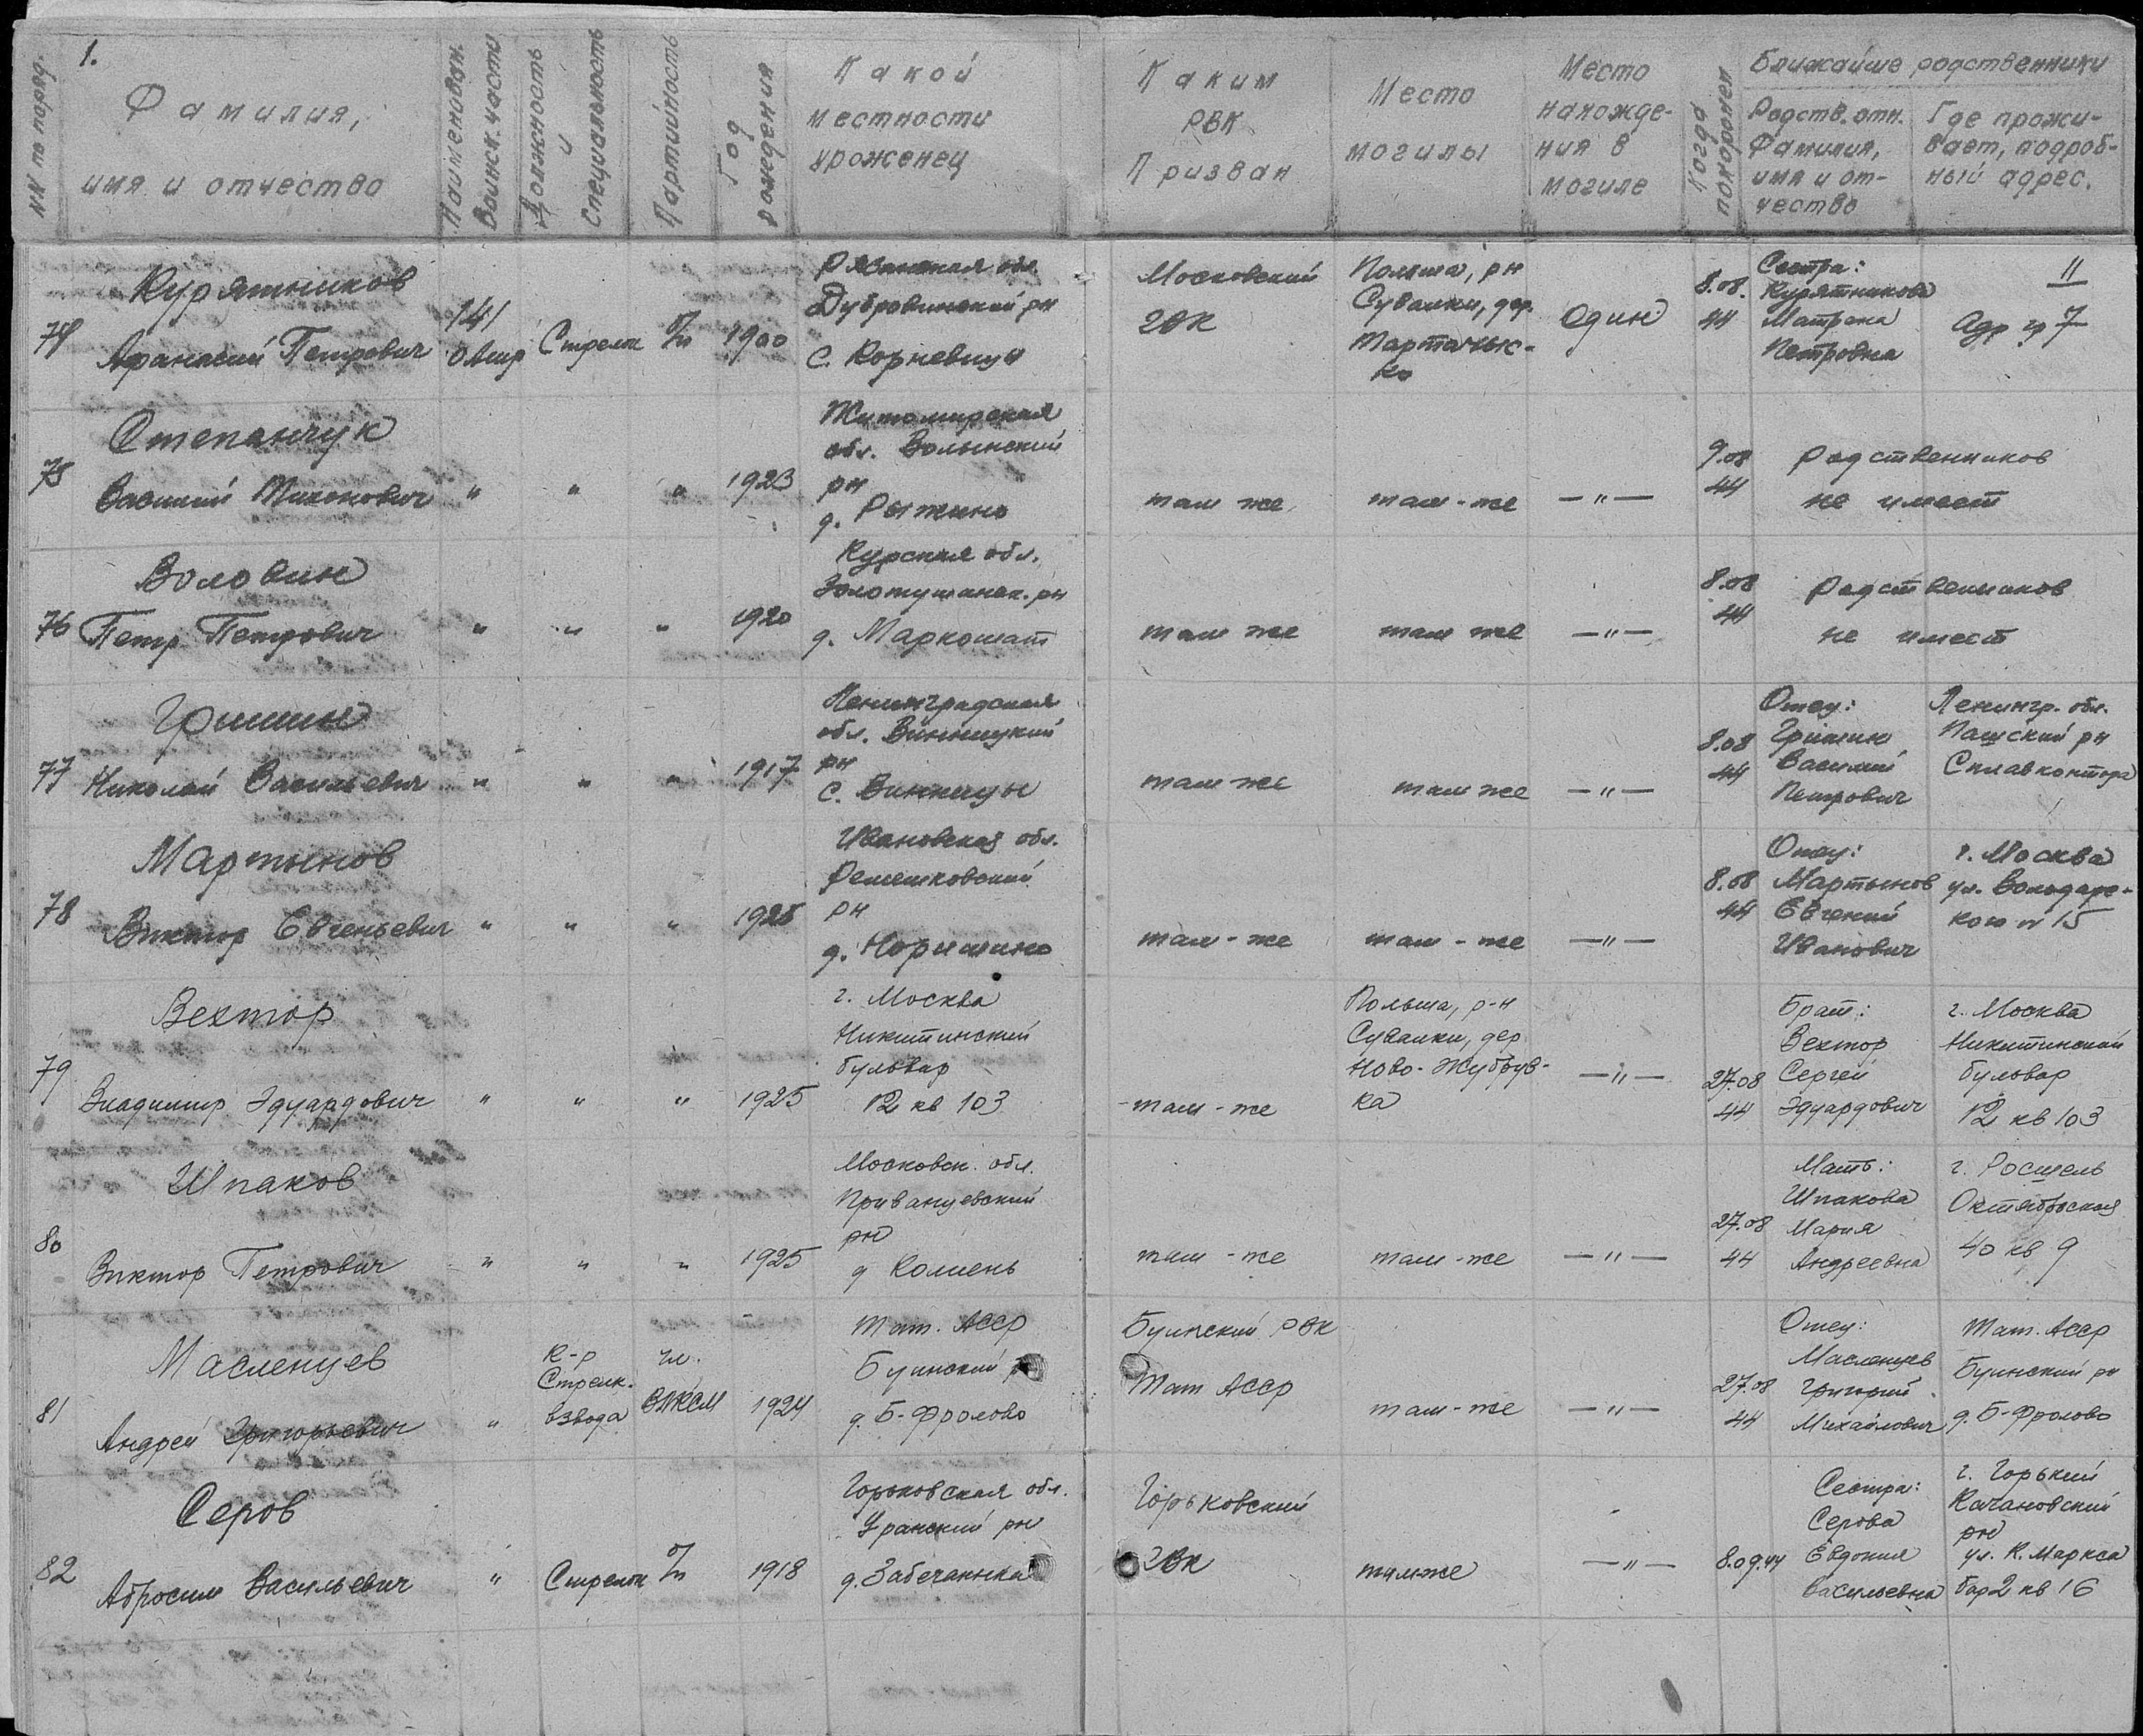 1.
NN по поряд.
Фамилия,
имя и отчество
Наименован.
Воинск. части
Должность
и
Специальность
Партийность
Год
рождения
Какой
местности
уроженец
Каким
РВК
Призван
Место
могилы
Место
нахожде-
ния в
могиле
Когда
похоронен
Ближайшие родственники
Родств. отн.
Фамилия,
имя и от-
чество
Где прожи-
вает, подроб-
ный адрес.
Курятников
Афанасий Петрович
141
Стрелок
б/п
1900
Рязанская обл
Дубровинский рн
с. Корневицы
Московский
ГВК
Польша, рн
Сувалки, дер.
Мартачыс-
ко
Один
8.08.
44
Сестра:
Курятникова
Матрена
Петровна
11
Адр гр 7
75
Степанчук
Василий Тихонович
"
"
"
1923
Житомирская
обл. Волынский
рн
д. Рыжино
там же
там-же
—"—
9.08
44
Родственников
не имеет
76
Воловик
Петр Петрович
"
"
"
1920
Курская обл.
Золотушинск. рн
д. Маркошат
там же
там же
—"—
8.08
44
Родственников
не имеет
77
Гришин
Николай Васильевич
"
"
"
1917
Ленинградская
обл. Винницкий
рн
с. Винницы
там же
там же
—"—
8.08
44
Отец:
Гришин
Василий
Петрович
Ленингр. обл.
Пашский рн
Сплавконтора
78
Мартынов
Виктор Евгеньевич
"
"
"
1925
Ивановская обл.
Решемковский
рн
д. Норишино
там-же
там-же
—"—
8.08
44
Отец:
Мартынов
Евгений
Иванович
г. Москва
ул. Володарс-
кого н 15
79
Вехтор
Владимир Эдуардович
"
"
"
1925
г. Москва
Никитинский
бульвар
12 кв 103
там-же
Польша, р-н
Сувалки, дер
Ново-Жубрув-
ка
—"—
27.08
44
Брат:
Вехтор
Сергей
Эдуардович
г. Москва
Никитинский
бульвар
12 кв 103
80
Шпаков
Виктор Петрович
"
"
"
1925
Московск. обл.
Приванцевский
рн
д Колмень
там-же
там-же
—"—
27.08
44
Мать:
Шпакова
Мария
Андреевна
г. Рошель
Октябрьская
40 кв 9
81
Масленцев
Андрей Григорьевич
"
к-р
Стрелк.
взвода
чл.
ВЛКСМ
1924
Тат. Асср
Буинский р
д. Б-Фролово
Буинский РВК
Тат Асср
там-же
—"—
27.08
44
Отец:
Масленцев
Григорий
Михайлович
Тат. Асср
Буинский рн
д. Б-Фролово
82
Серов
Абросим Васильевич
"
Стрелок
б/п
1918
Горьковская обл.
Уранский рн
д. Забечанка
Горьковский
ГВК
тамже
—"—
8.09.44
Сестра:
Серова
Евдокия
Васильевна
г. Горький
Качановский
рн
ул. К. Маркса
бар 2 кв 16